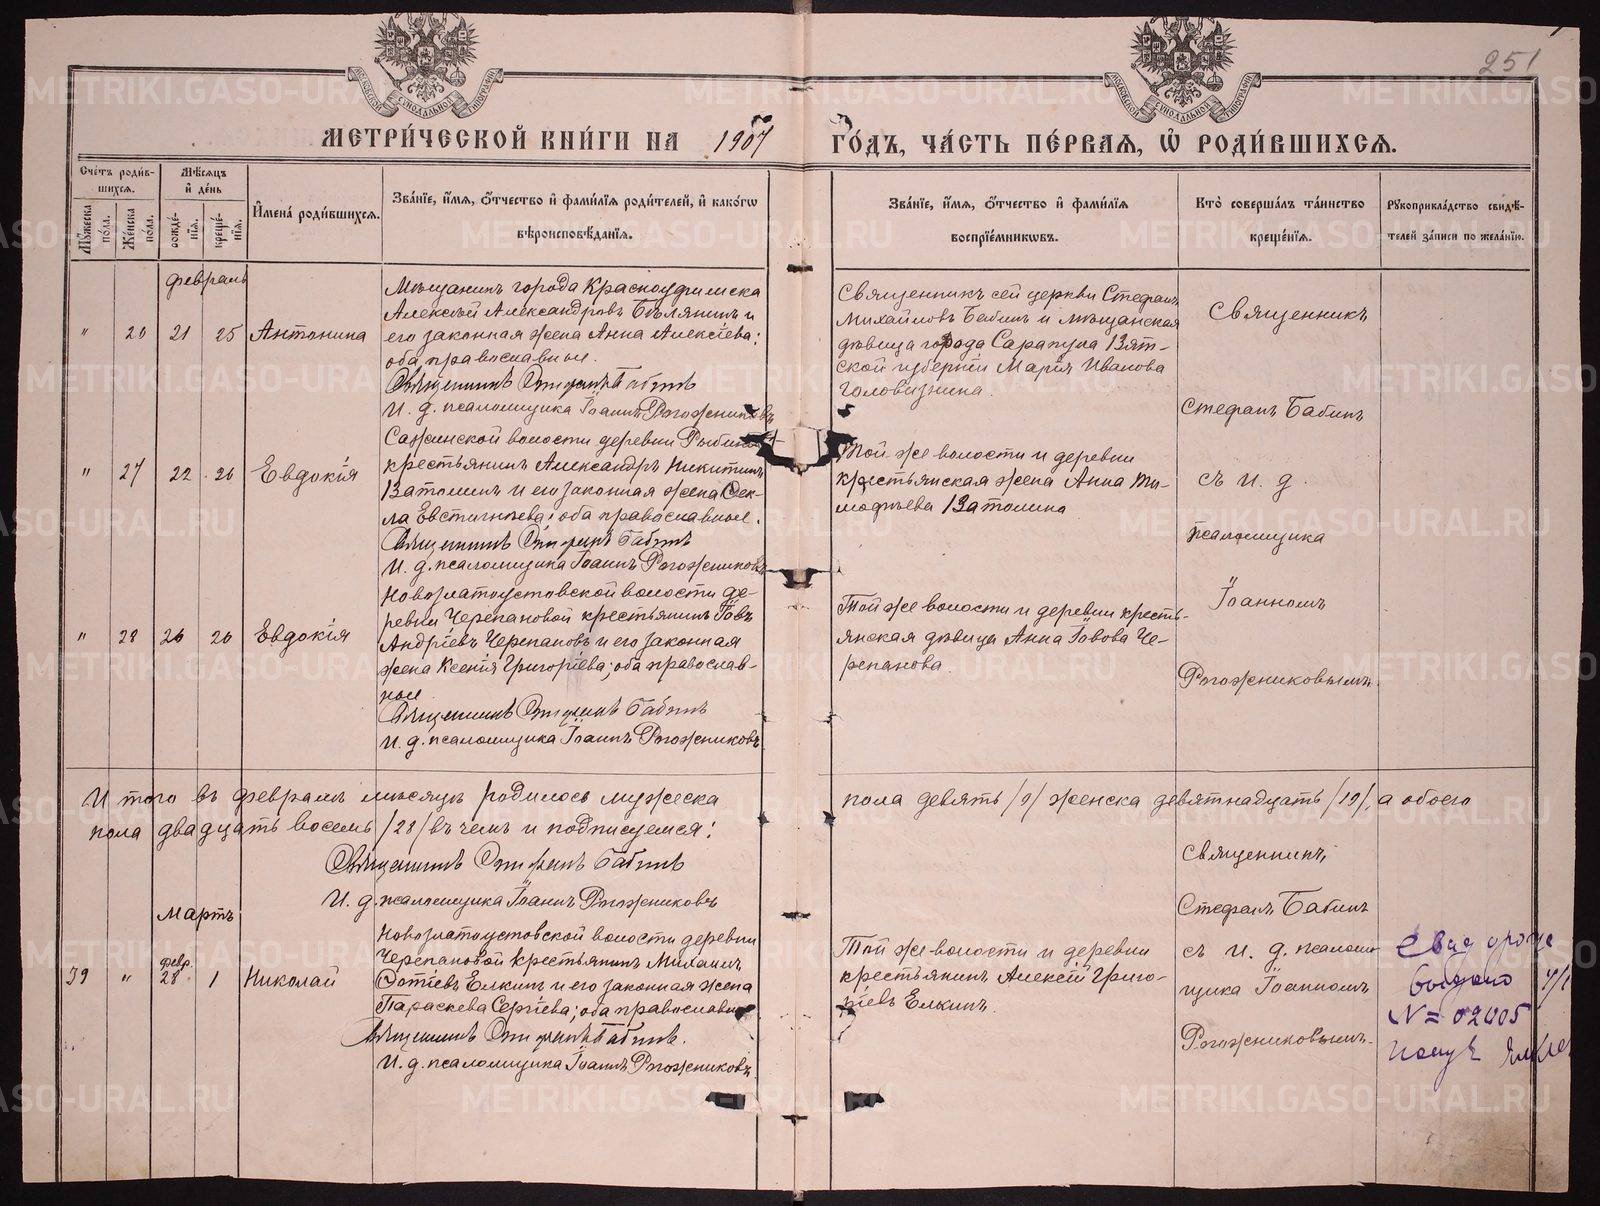 251
МЕТРИЧЕСКОЙ КНИГИ НА 1907 ГОДЪ, ЧАСТЬ ПЕРВАЯ, Ѿ РОДИВШИХСЯ.
Счетъ родившихся.
Мужеска пола.
Женска пола.
Мѣсяцъ и день
рождéнія.
крещéнія.
Имена родившихся.
Званіе, имя, отчество и фамилія родителей, и какогѡ вѣроисповѣданія.
Званіе, имя, отчество и фамилія воспріемникѡвъ.
Кто совершалъ таинство крещенія.
Рукоприкладство свидѣтелей записи по желанію.
февраль
" 26 21 25 Антонина
Мѣщанинъ города Красноуфимска
Алексѣй Александровъ Бѣлянинъ и
его законная жена Анна Алексіева;
оба православные.
Священникъ Стефанъ Бабинъ
И. д. псаломщика Іоаннъ Рогожниковъ
Священникъ сей церкви Стефанъ
Михайловъ Бабинъ и мѣщанская
дѣвица города Сарапула Вят-
ской губерніи Марія Иванова
Головизнина.
Священникъ
Стефанъ Бабинъ
" 27 22 26 Евдокія
Сажинской волости деревни
крестьянинъ Александръ Никитинъ
Ватолинъ и его законная жена Фек-
ла Евстигнѣева; оба православные.
Священникъ Стефанъ Бабинъ
И. д. псаломщика Іоаннъ Рогожниковъ
Той же волости и деревни
крестьянская жена Анна Ти-
мофѣева Ватолина
съ и. д.
псаломщика
" 28 26 26 Евдокія
Новозлатоустовской волости де-
ревни Черепановой крестьянинъ Іовъ
Андріевъ Черепановъ и его законная
жена Ксенія Григоріева; оба православ-
ные.
Священникъ Стефанъ Бабинъ
И. д. псаломщика Іоаннъ Рогожниковъ
Той же волости и деревни кресть-
янская дѣвица Анна Іовова Че-
репанова.
Іоанномъ
Рогожниковымъ.
Итого въ февралѣ мѣсяцѣ родилось мужеска пола девять /9/ женска девятнадцать /19/, а обоего
пола двадцать восемь /28/ въ чемъ и подписуемся:
Священникъ Стефанъ Бабинъ
И. д. псаломщика Іоаннъ Рогожниковъ
мартъ
19 " февр. 28 1 Николай
Новозлатоустовской волости деревни
Черепановой крестьянинъ Михаилъ
Фотіевъ Елкинъ и его законная жена
Параскева Сергіева; оба православные
Священникъ Стефанъ Бабинъ.
И. д. псаломщика Іоаннъ Рогожниковъ
Той же волости и деревни
крестьянинъ Алексій Григо-
ріевъ Елкинъ.
Священникъ
Стефанъ Бабинъ
съ и. д. псалом-
щика Іоанномъ
Рогожниковымъ.
выдано
N= 02005
METRIKI.GASO-URAL.RU